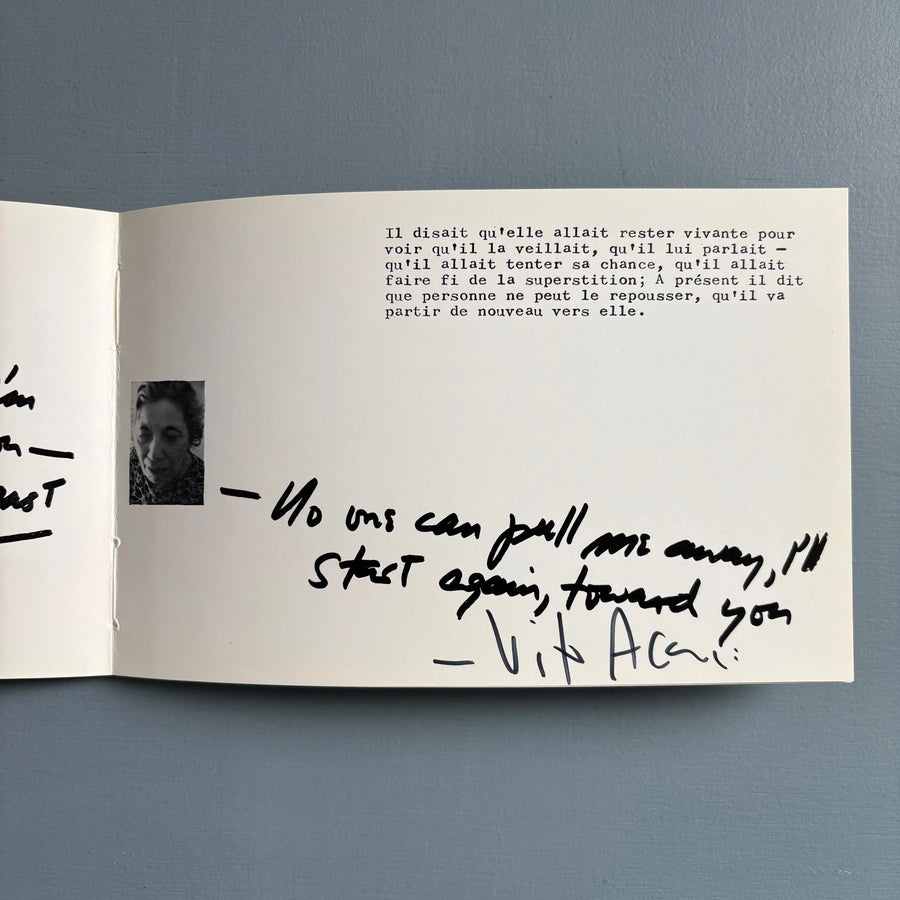 Il disait qu'elle allait rester vivante pour
voir qu'il la veillait, qu'il lui parlait —
qu'il allait tenter sa chance, qu'il allait
faire fi de la superstition; A présent il dit
que personne ne peut le repousser, qu'il va
partir de nouveau vers elle.
— No one can pull me away, I'll
start again, toward you
— Vito Acconci